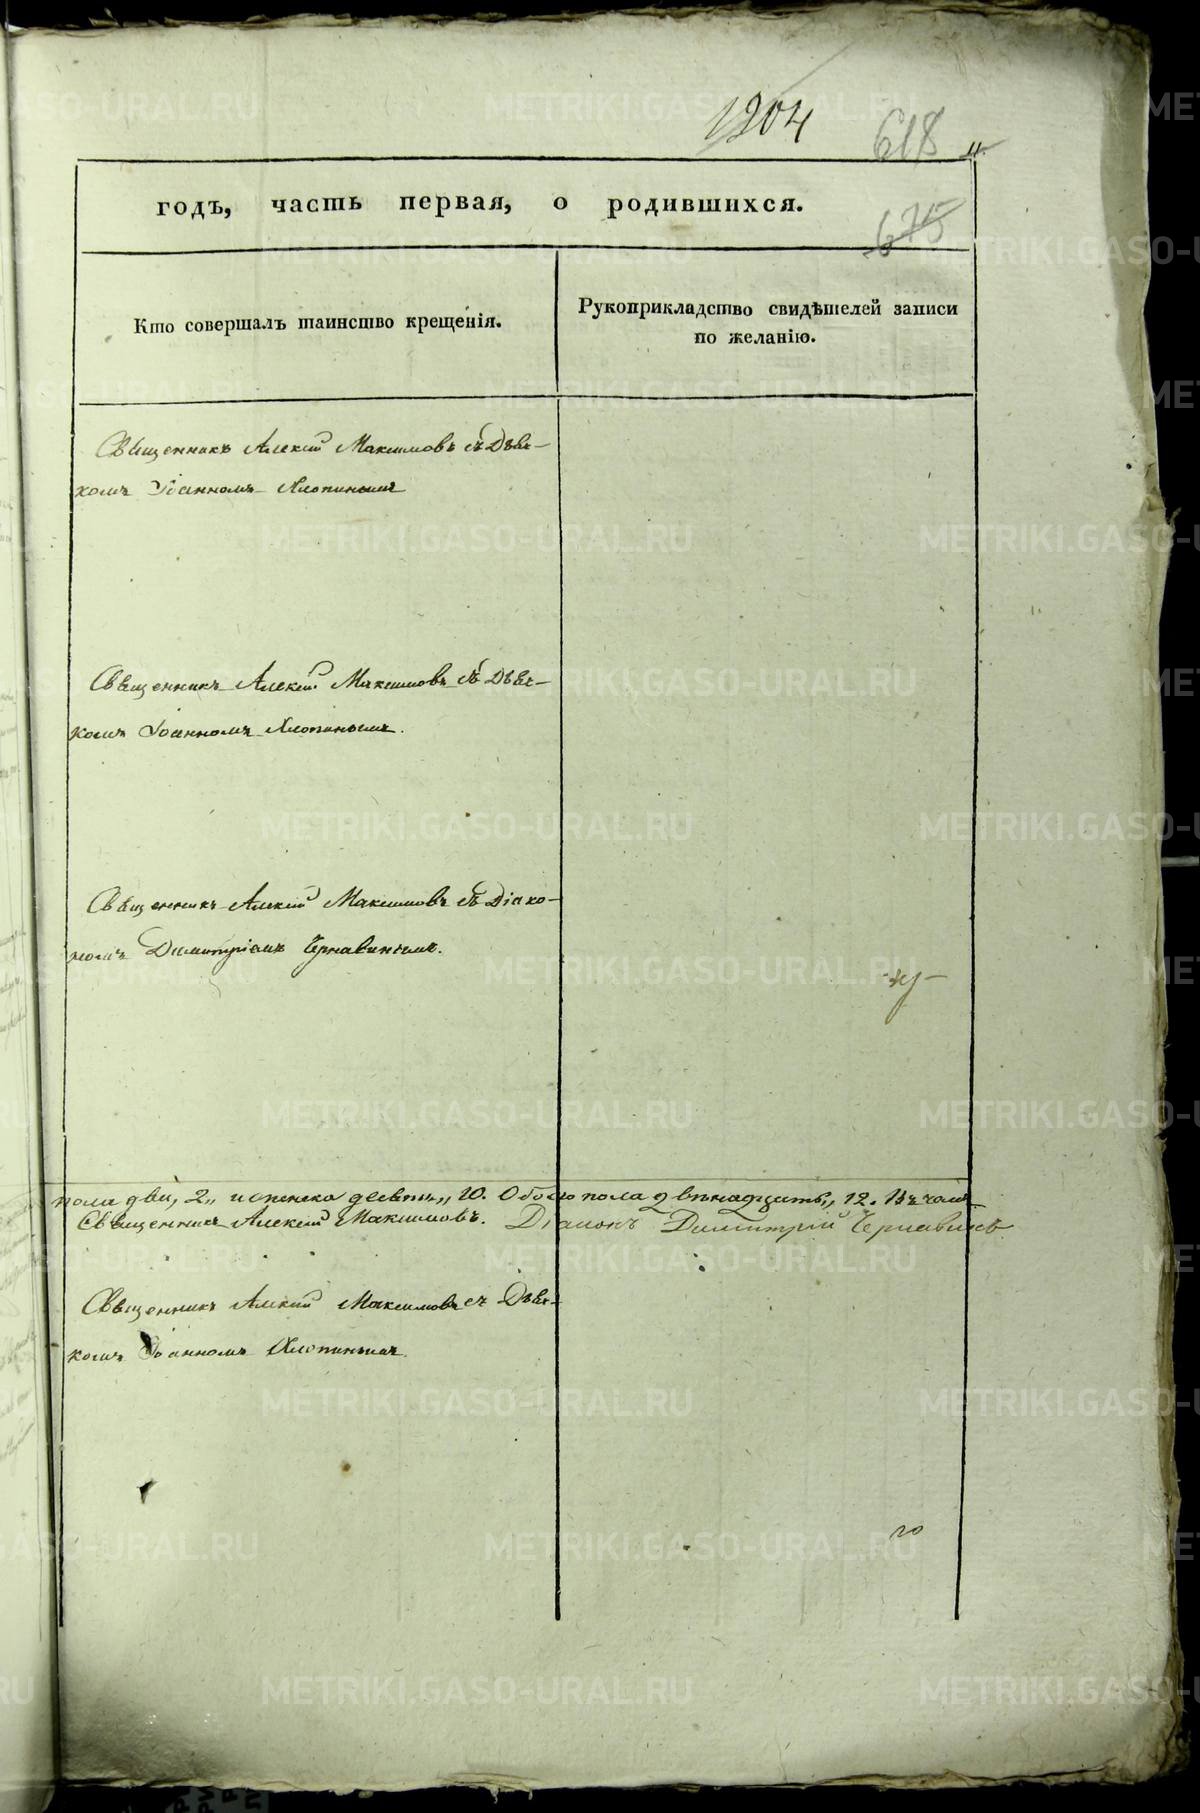 1204
618
годъ, часть первая, о родившихся.
675
Кто совершалъ таинство крещенія.
Рукоприкладство свидѣтелей записи
по желанію.
Священникъ Алексій Максимовъ съ Дьяч-
комъ Іоанномъ Хлопинымъ
Священникъ Алексій Максимовъ съ Дьяч-
комъ Іоанномъ Хлопинымъ.
Священникъ Алексій Максимовъ съ Діако-
номъ Димитріемъ Чернавинымъ.
пола два, 2,, и женска десять,, 10. Обоего пола двенадцать,, 12.
Священникъ Алексій Максимовъ. Діаконъ Димитрій Чернавинъ
Священникъ Алексій Максимовъ съ Дьяч-
комъ Іоанномъ Хлопинымъ.
METRIKI.GASO-URAL.RU